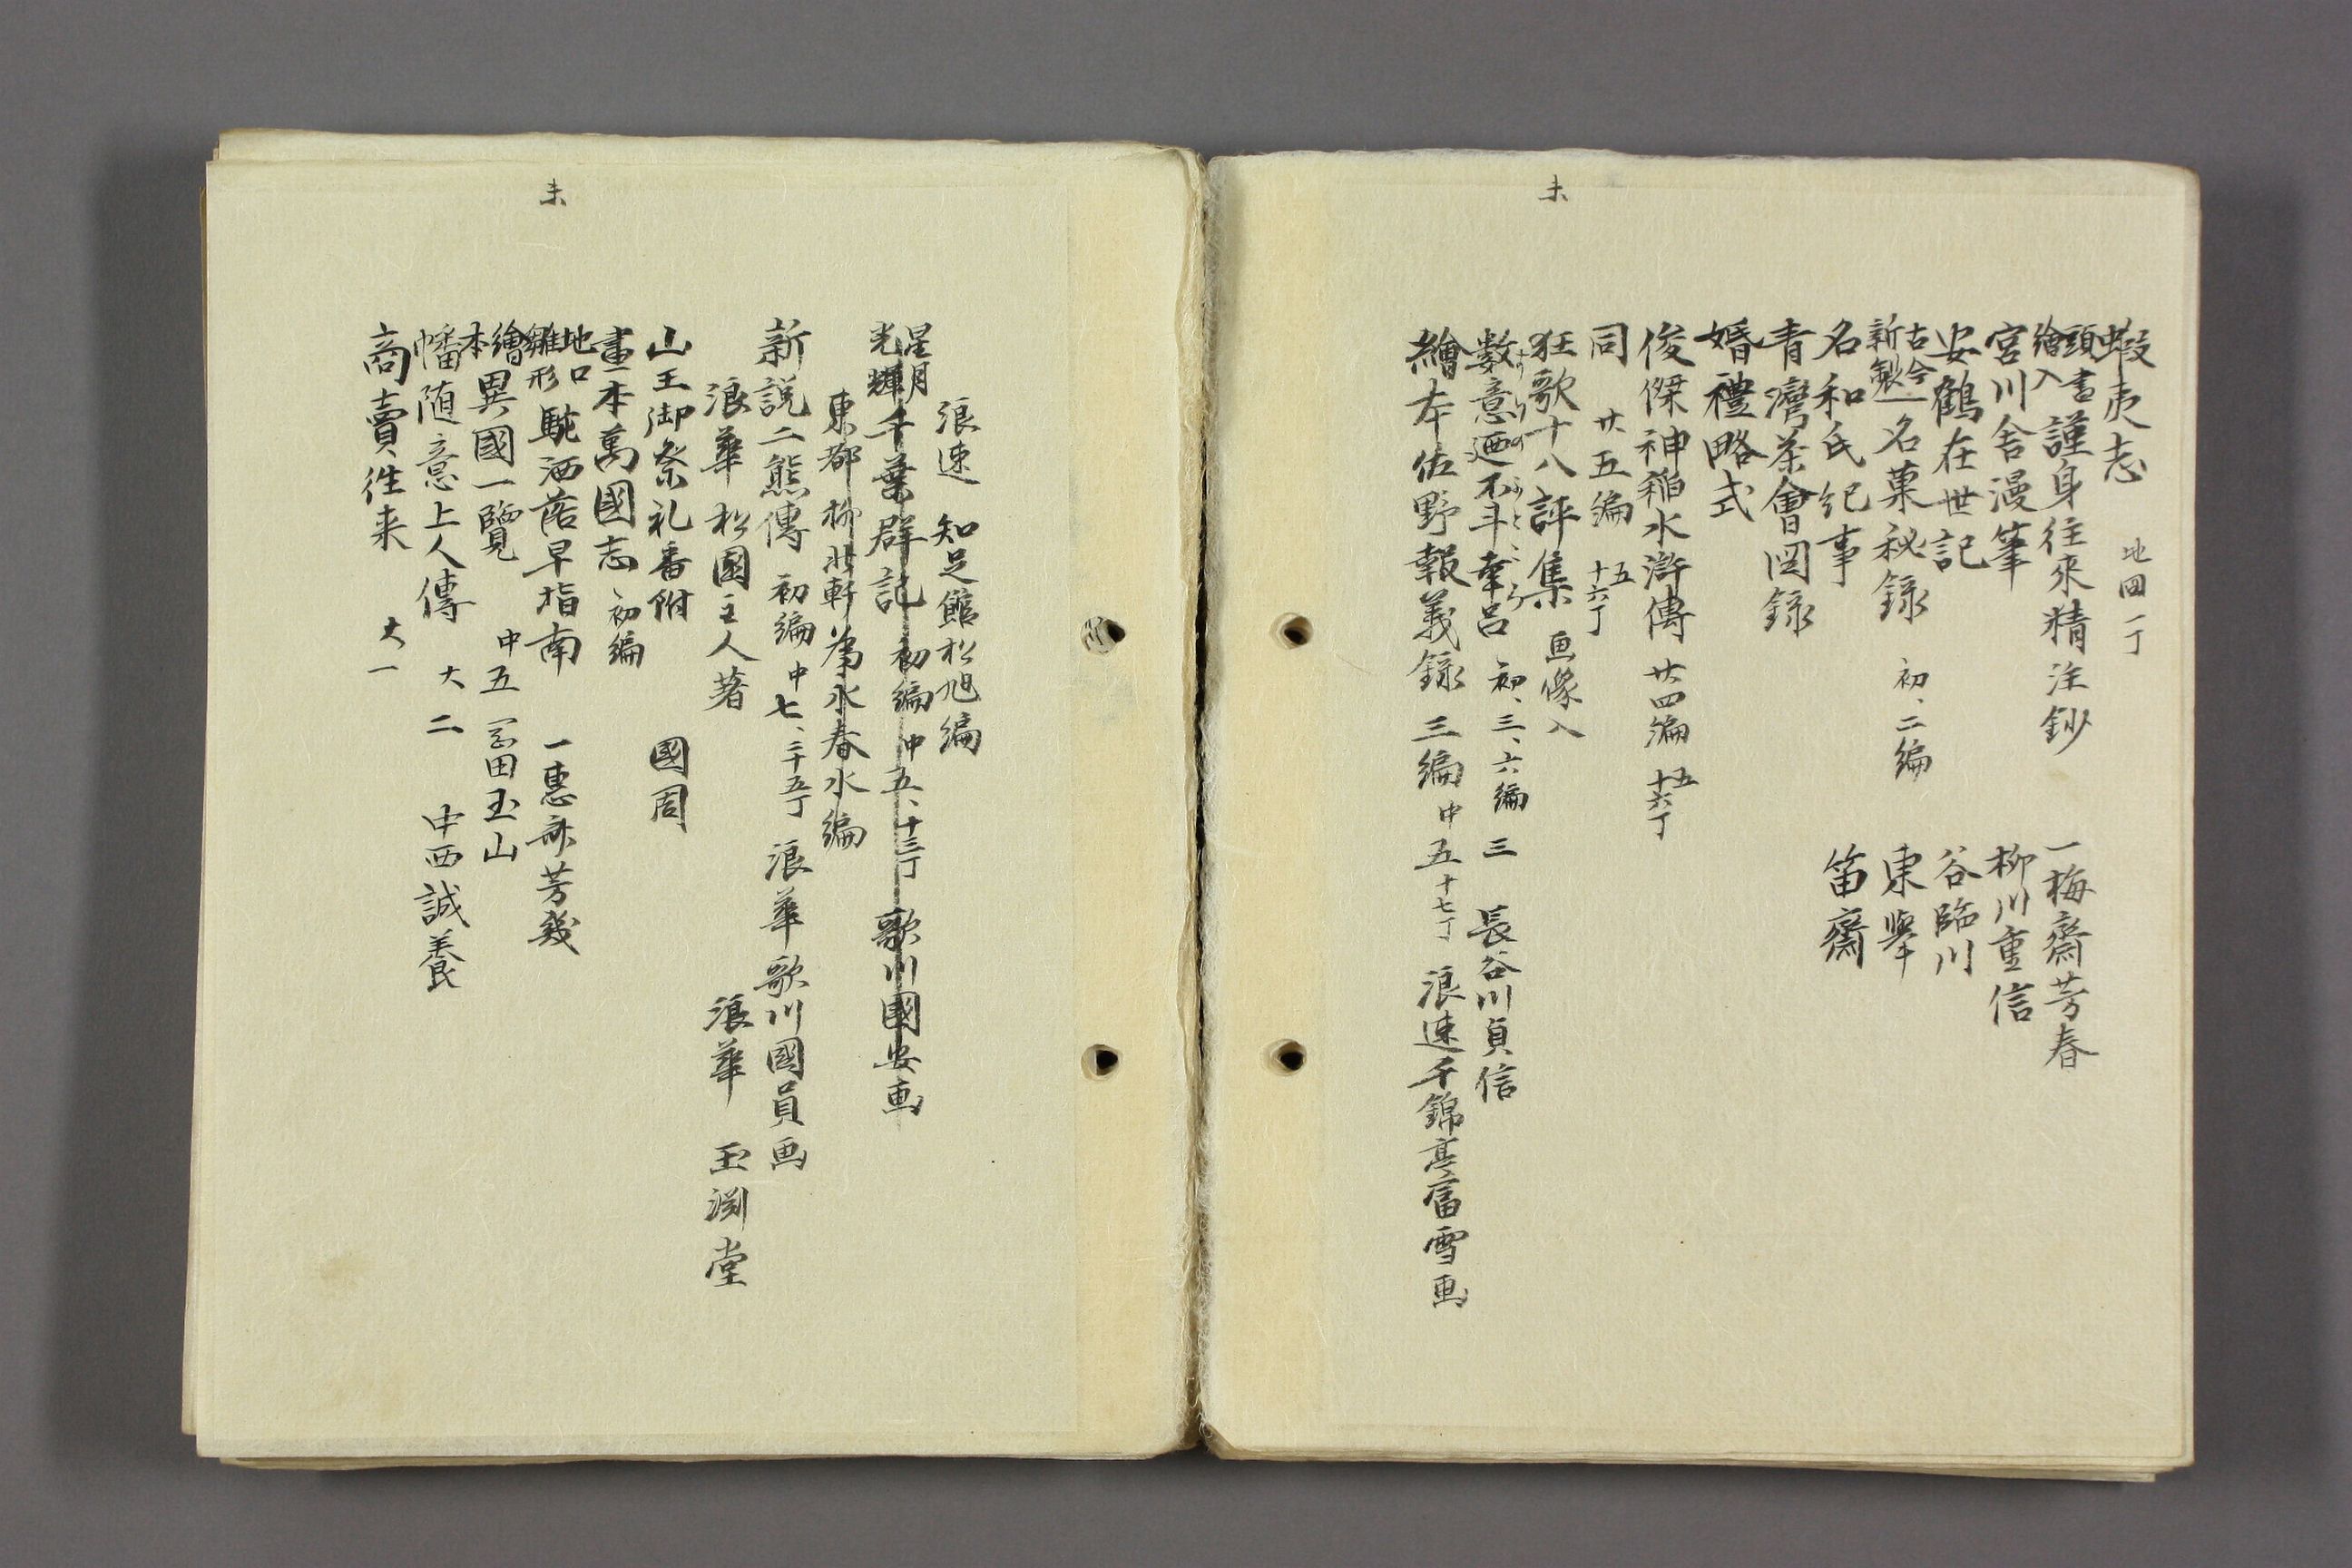 未
蝦夷志 地図一丁
頭書絵入 謹身往來精注鈔 一梅齋芳春
宮川舎漫筆 柳川重信
安鶴在世記 谷臨川
古今新製 名菓秘録 初、二編 東挙
名和氏紀事 笛齋
青灣茶會図録
婚禮略式
俊傑神稲水滸傳 廿四編 五十六丁
同 廿五編 五十六丁
狂歌十八評集 画像入
數意廼不斗幸呂 初、三、六編 三 長谷川貞信
繪本佐野報義録 三編 中五 十七丁 浪速千錦亭富雪画
未
浪速 知足館松旭編
星月光輝 千葉群記 初編 中五、十三丁 歌川國安画
東都 柳北軒為永春水編
新説二熊傳 初編 中七、二十五丁 浪華歌川國員画
浪華 松園主人著 浪華 玉淵堂
山王御祭礼番附 國周
畫本萬國志 初編
地口雛形 駝洒落早指南 一惠齋芳幾
繪本 異國一覽 中五 岡田玉山
幡随意上人傳 大二 中西誠養
商賣徃来 大一